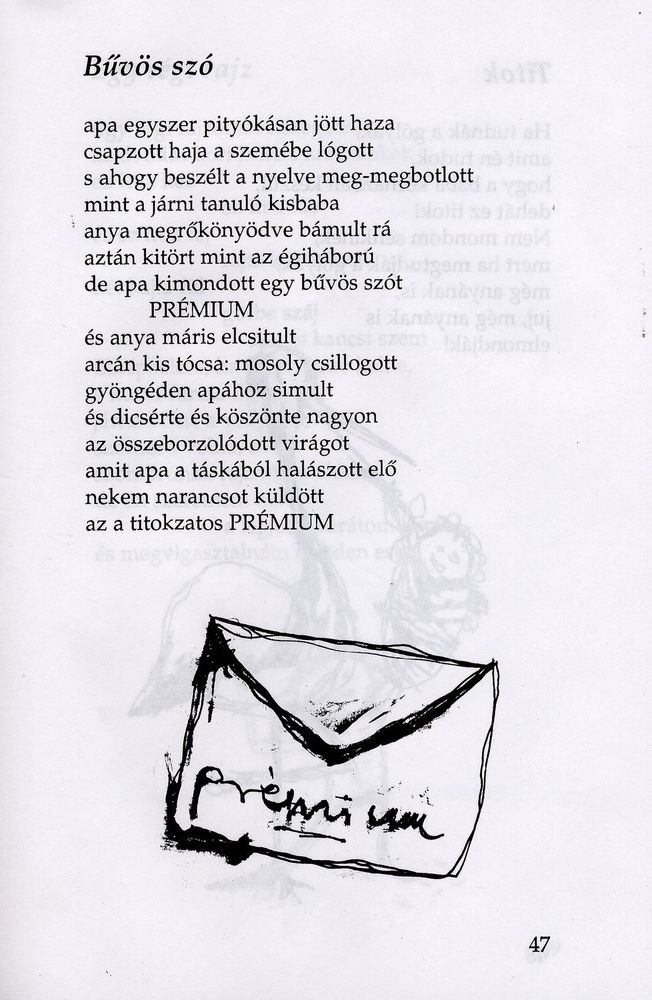 Bűvös szó
apa egyszer pityókásan jött haza
csapzott haja a szemébe lógott
s ahogy beszélt a nyelve meg-megbotlott
mint a járni tanuló kisbaba
anya megrőkönyödve bámult rá
aztán kitört mint az égiháború
de apa kimondott egy bűvös szót
PRÉMIUM
és anya máris elcsitult
arcán kis tócsa: mosoly csillogott
gyöngéden apához simult
és dicsérte és köszönte nagyon
az összeborzolódott virágot
amit apa a táskából halászott elő
nekem narancsot küldött
az a titokzatos PRÉMIUM
prémium
47